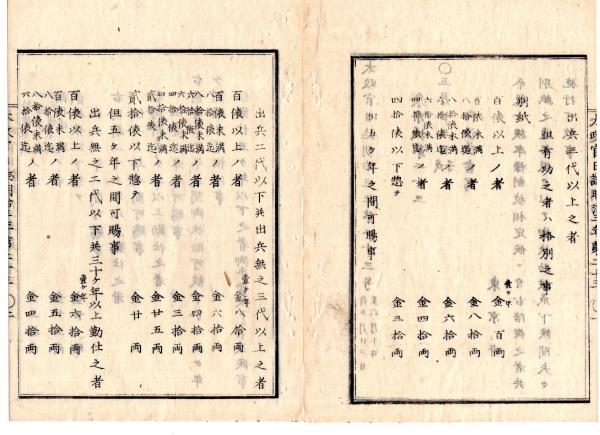 出兵三代以上之者
但有功之者ハ格別之事
百俵以上ノ者 壹ヶ年 金百両
百俵未満八拾俵迄ノ者 金八拾両
八拾俵未満六拾俵迄ノ者 金六拾両
六拾俵未満四拾俵迄ノ者 金四拾両
四拾俵以下惣テ 金三拾両
但五ヶ年之間可賜事
出兵二代以下共出兵無之三代以上之者
百俵以上ノ者 壹ヶ年 金八拾両
百俵未満八拾俵迄ノ者 金六拾両
八拾俵未満六拾俵迄ノ者 金四拾両
六拾俵未満四拾俵迄ノ者 金三拾両
四拾俵未満貳拾俵迄ノ者 金廿五両
貳拾俵以下惣テ 金廿両
但五ヶ年之間可賜事
出兵無之二代以下共三十ヶ年以上勤仕之者
百俵以上ノ者 壹ヶ年 金六拾両
百俵未満八拾俵迄ノ者 金五拾両
八拾俵未満六拾俵迄ノ者 金四拾両